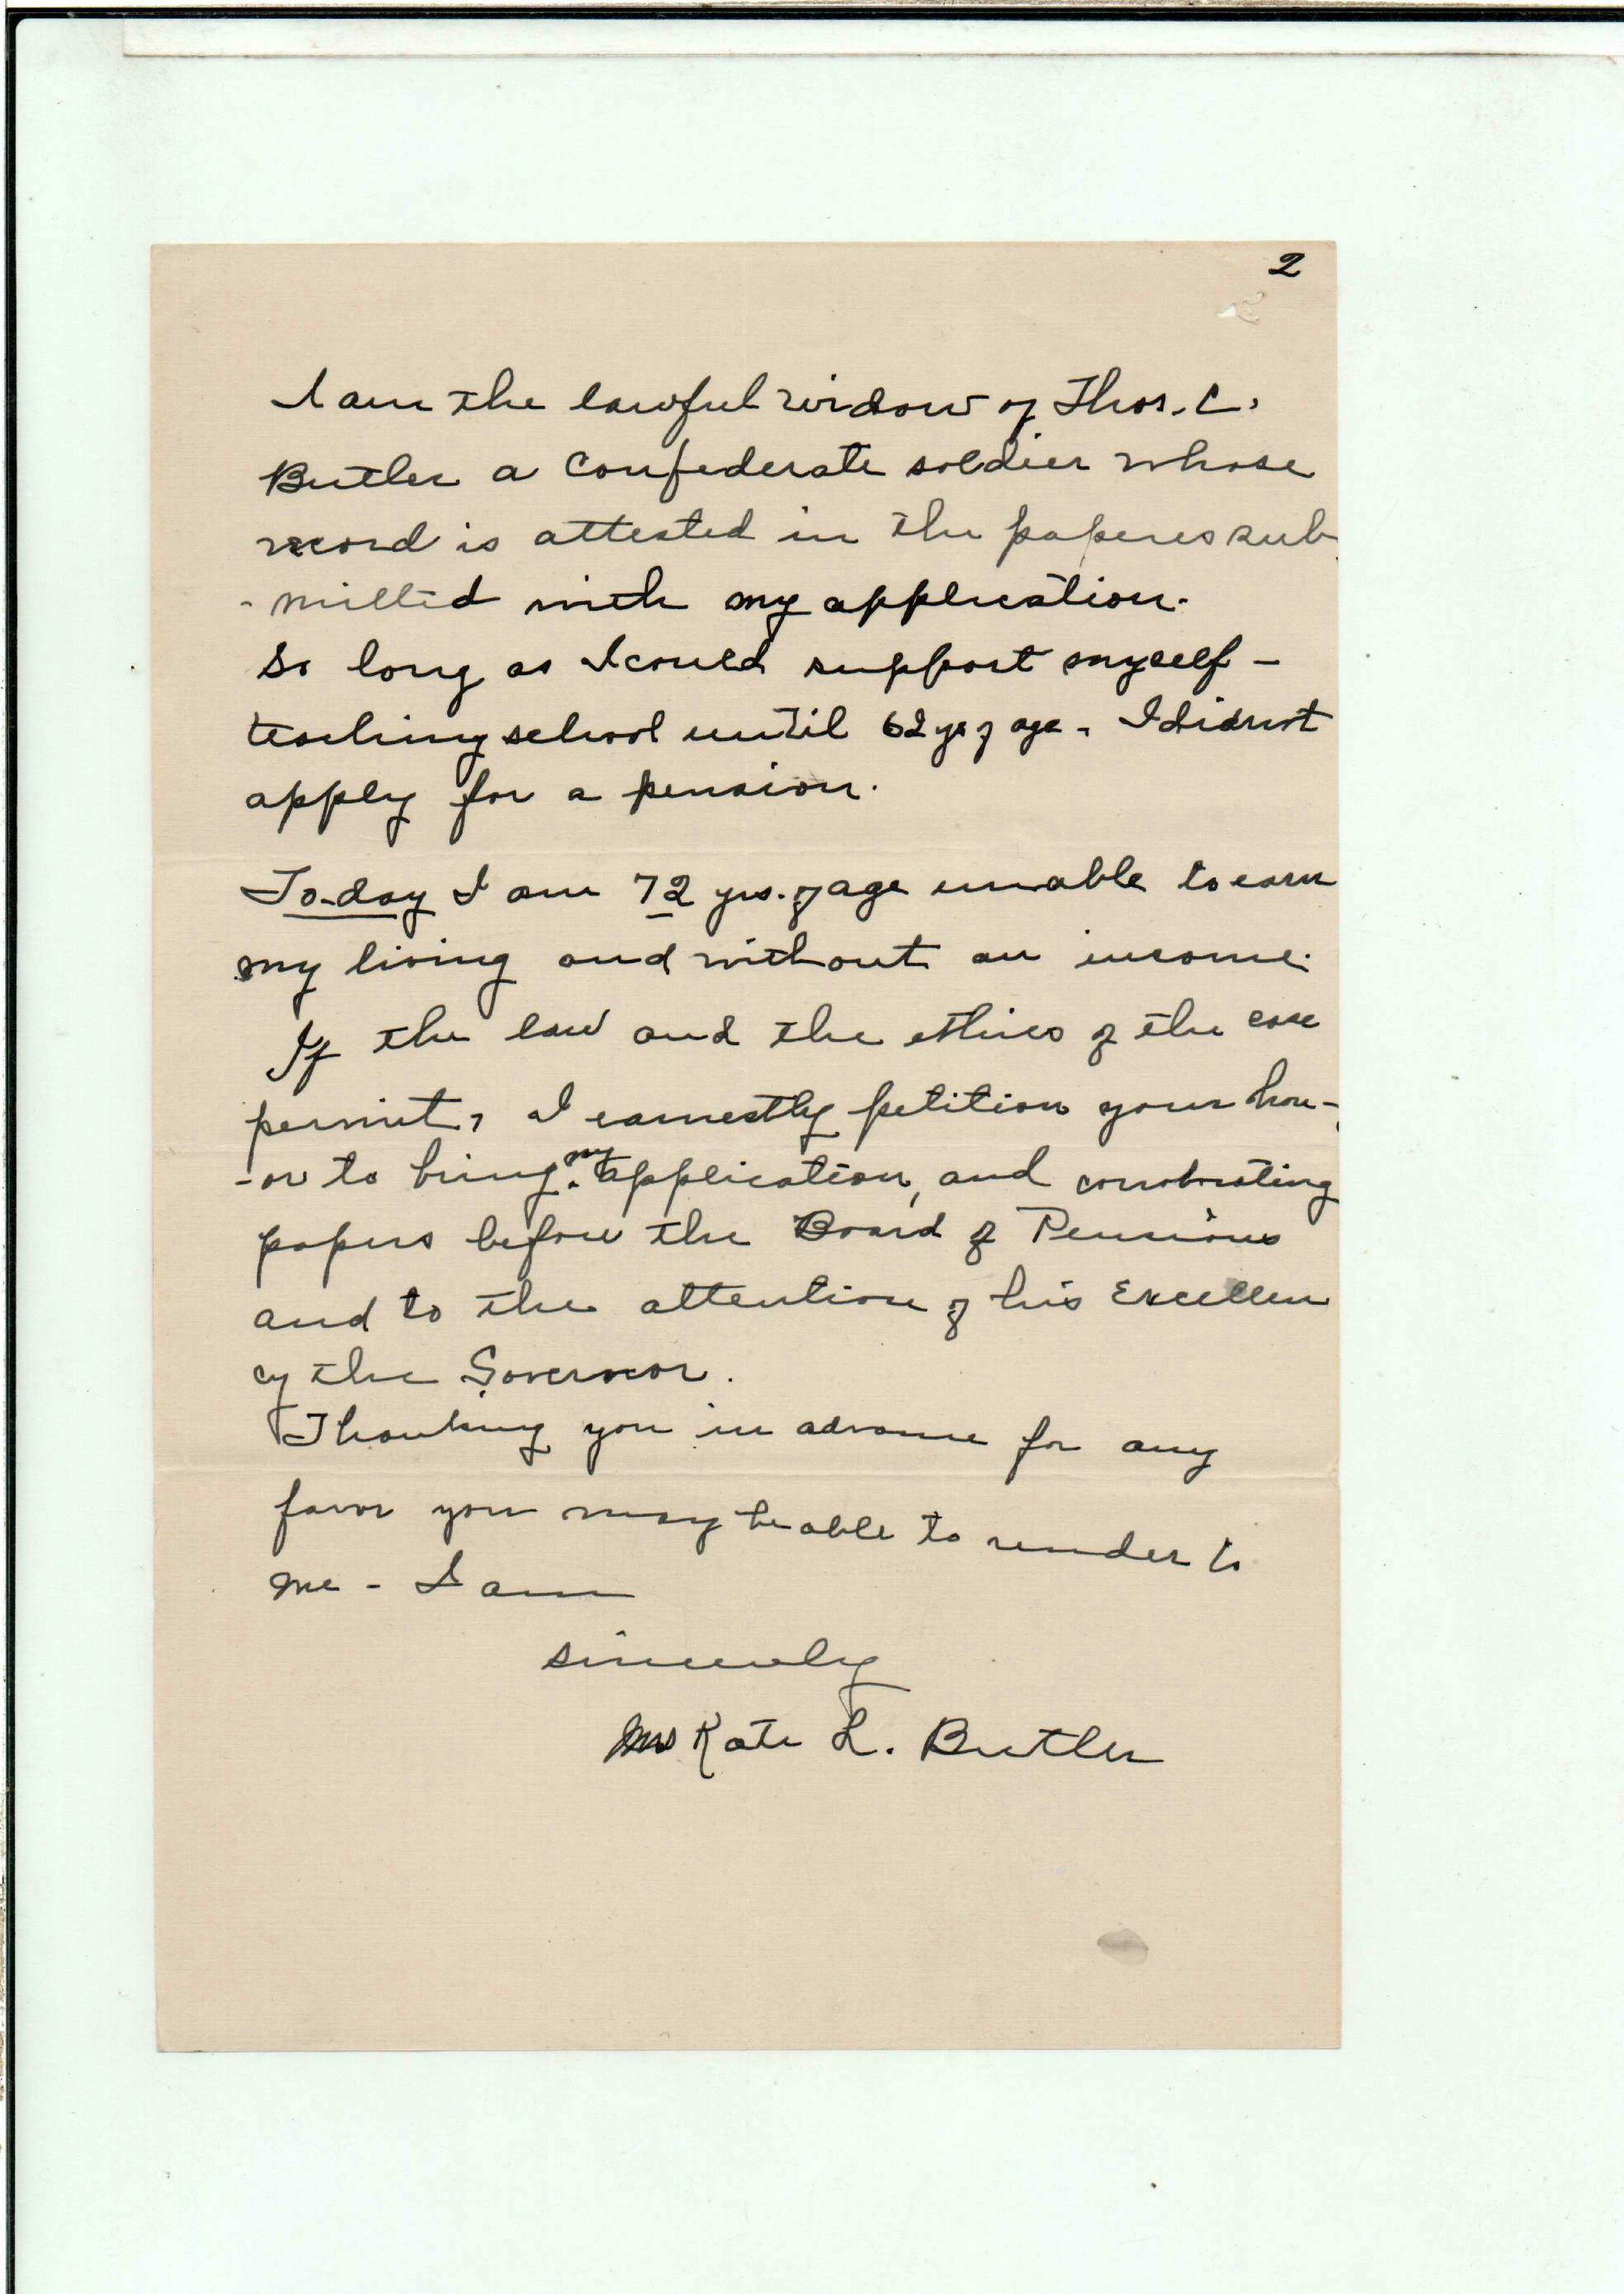 2
I am the lawful widow of Thos. C.
Butler a Confederate soldier whose
record is attested in the paperes sub-
-mitted with my application.
So long as I could support myself -
teaching school until 62 yrs of age - I did not
apply for a pension.
To-day I am 72 yrs. of age unable to earn
my living and without an income.
If the law and the ethics of the case
permit, I earnestly petition your hon-
-or to bring my application, and corroborating
papers before the Board of Pensions
and to the attention of his Excellen
cy the Governor.
Thanking you in advance for any
favor you may be able to render to
me - I am
sincerely
Mrs Kate L. Butler